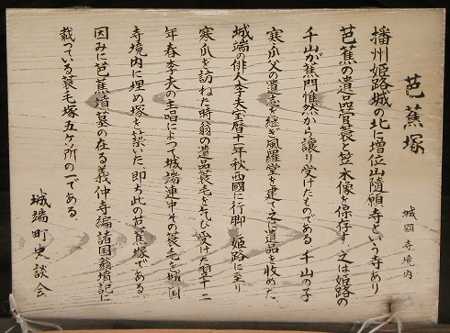 芭蕉塚
城端寺境内
播州姫路城の北に増位山随願寺という寺あり
芭蕉の遺品蓑と笠木像を保存す、之は姫路の
千山が蕉門惟然から譲り受けたものである 千山の子
寒爪父の遺志を継ぎ風羅堂を建て之に遺品を收めた、
城端の俳人李夫宝暦十一年秋西國に行脚し姫路に至り
寒爪を訪ねた時翁の遺品蓑毛を乞ひ受けた翌十二
年春李夫の主唱によって城端連中その蓑毛を城
寺境内に埋め塚を築いた、即ち此の芭蕉塚である。
因みに芭蕉翁墓の在る義仲寺編諸国翁墳記に
載っている蓑毛塚五ヶ所の一である。
城端町史談会